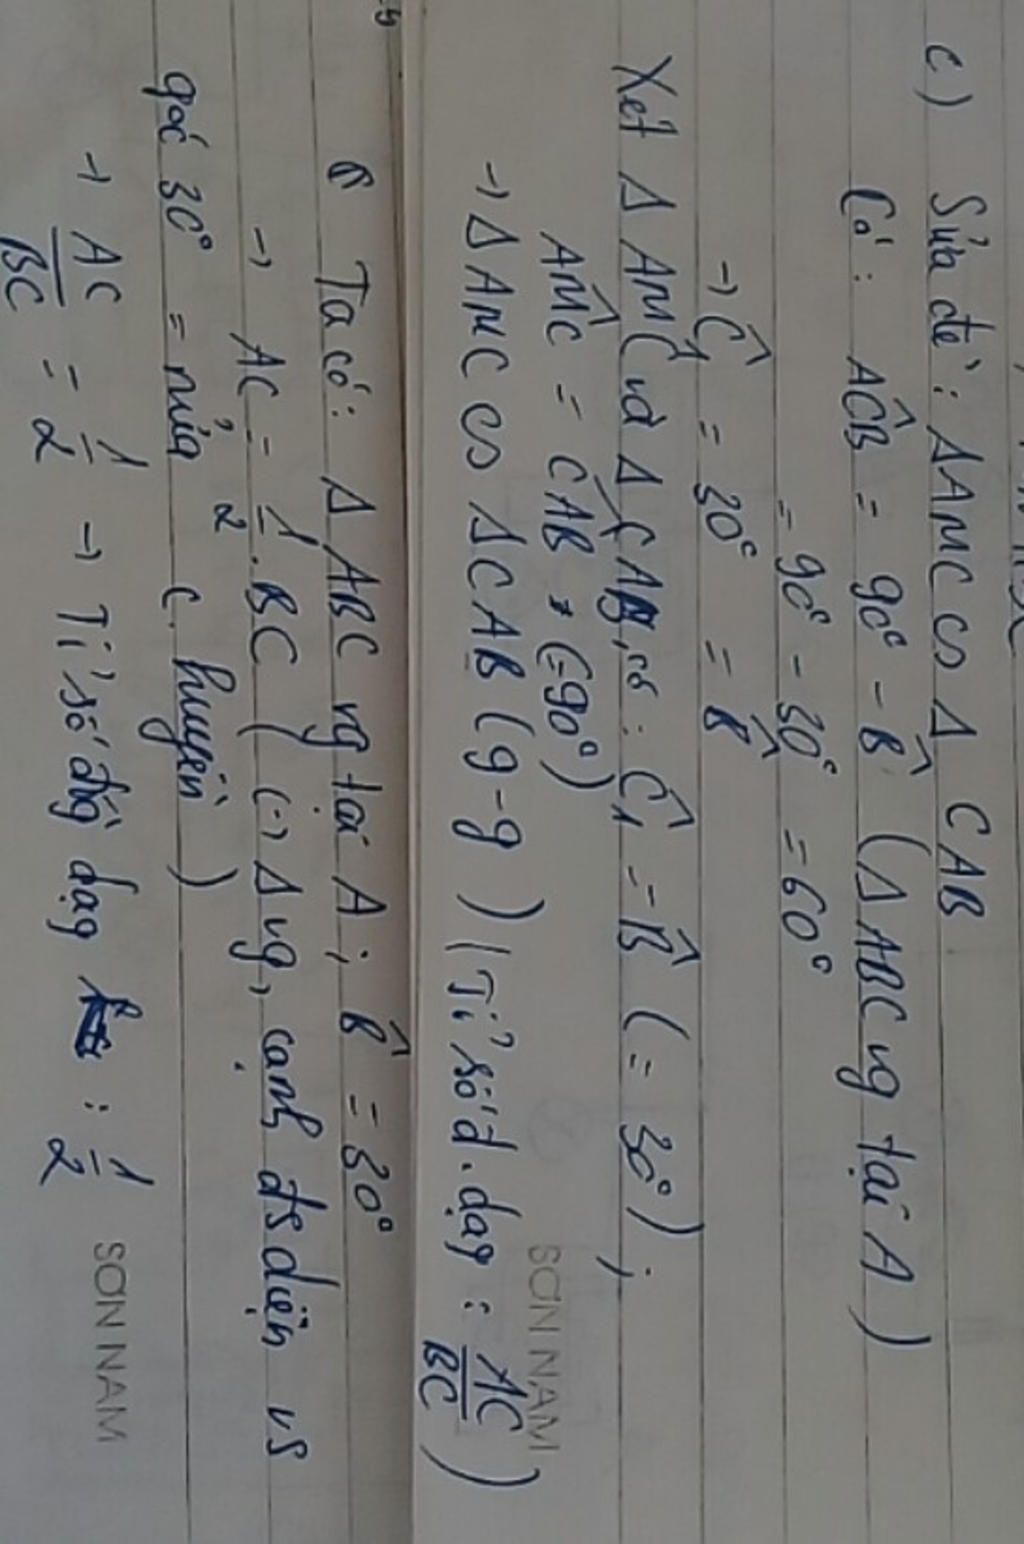 c) Sửa đề: Δ AMC ᔕ Δ CAB
Có: AĈB = 90° - B̂ (Δ ABC vg tại A)
= 90° - 30° = 60°
→ Ĉ₁ = 30° = B̂
Xét Δ AMC và Δ CAB, có: Ĉ₁ = B̂ (= 30°);
AM̂C = CÂB (=90°)
→ Δ AMC ᔕ Δ CAB (g-g) (Tỉ số đ. dạg: AC/BC)
SƠN NAM
Ta có: Δ ABC vg tại A; B̂ = 30°
→ AC = 1/2 . BC (∵ Δ vg, cạnh đs diện vs
góc 30° = nửa c. huyền)
→ AC/BC = 1/2 → Tỉ số đồg dạg : 1/2
SƠN NAM